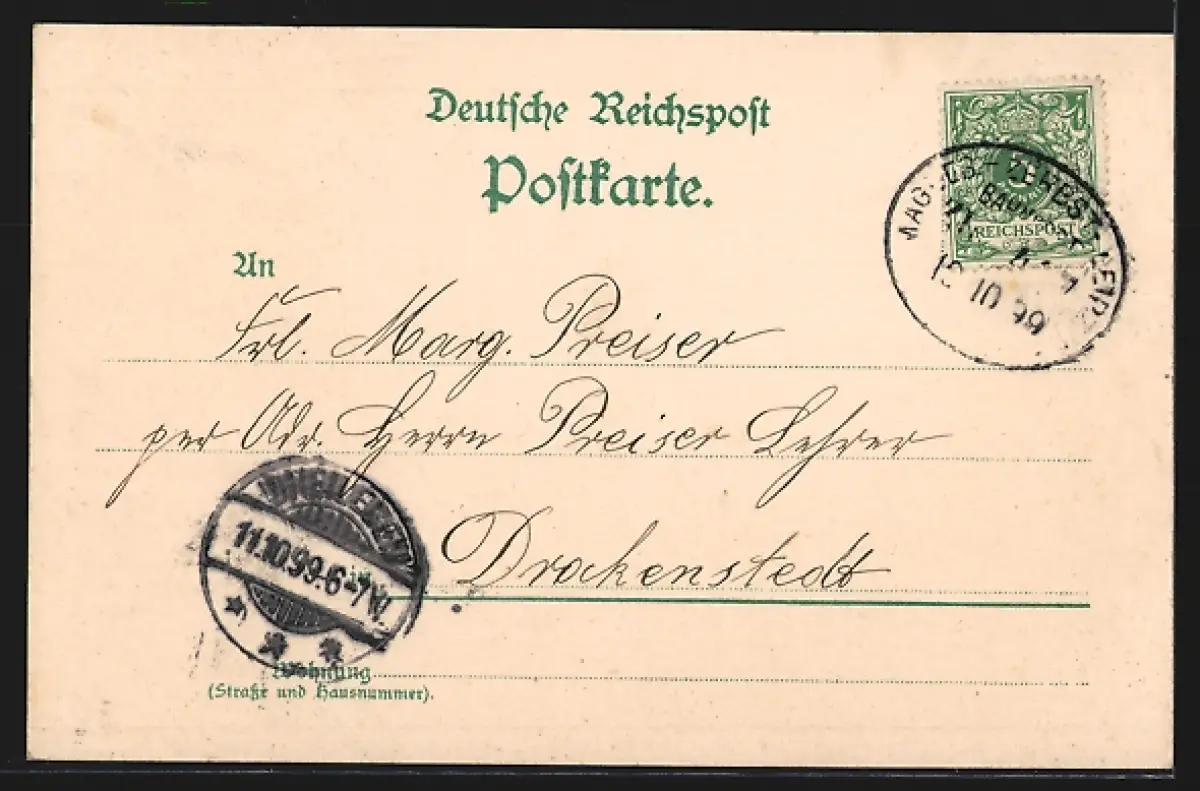 Deutsche Reichspost
Postkarte.
5
REICHSPOST
ZERBST
10 99
An
Frl. Marg. Preiser
per Adr. Herrn Preiser Lehrer
Drakenstedt
11.10.99.6-7N.
Wohnung
(Straße und Hausnummer).